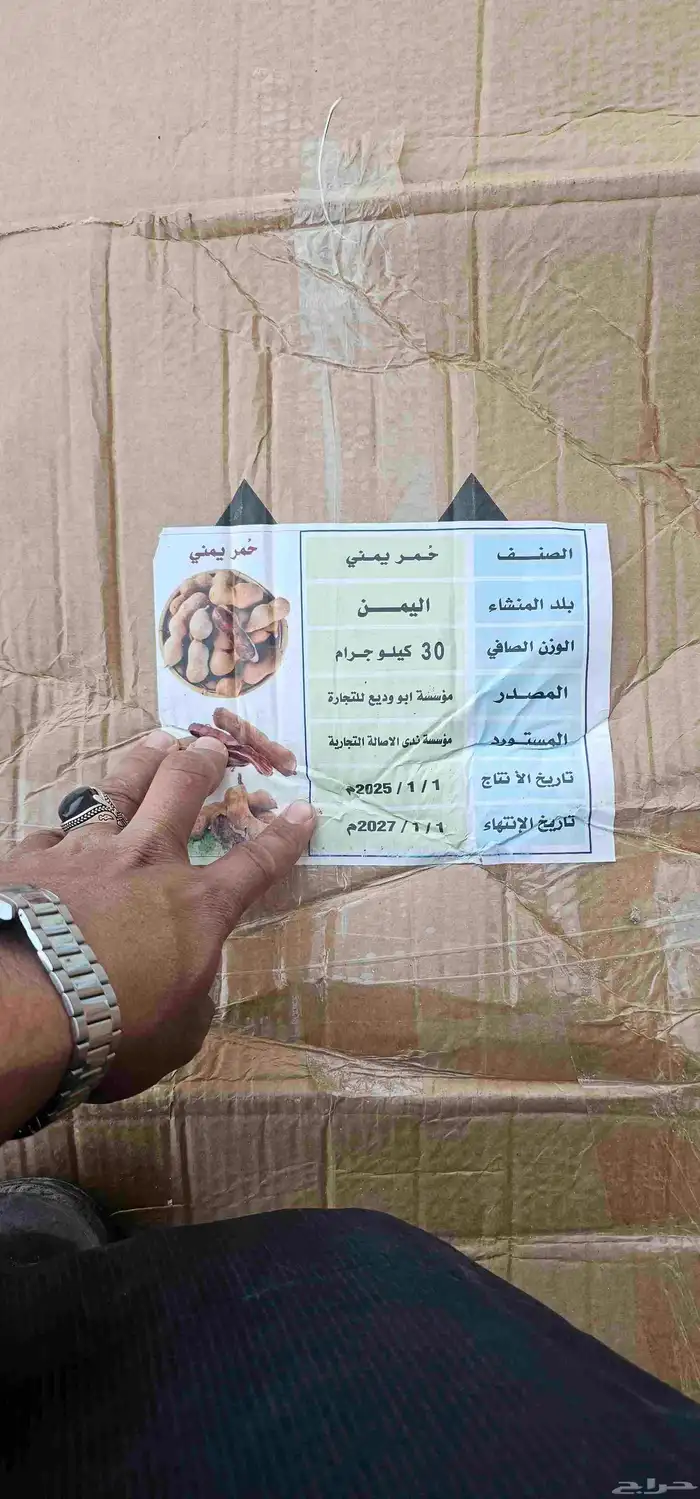 حُمر يمني
الصنف حُمر يمني
بلد المنشاء اليمن
الوزن الصافي 30 كيلو جرام
المصدر مؤسسة ابو وديع للتجارة
المستورد مؤسسة ندى الاصالة التجارية
تاريخ الأنتاج 1 / 1 / 2025م
تاريخ الإنتهاء 1 / 1 / 2027م
حراج